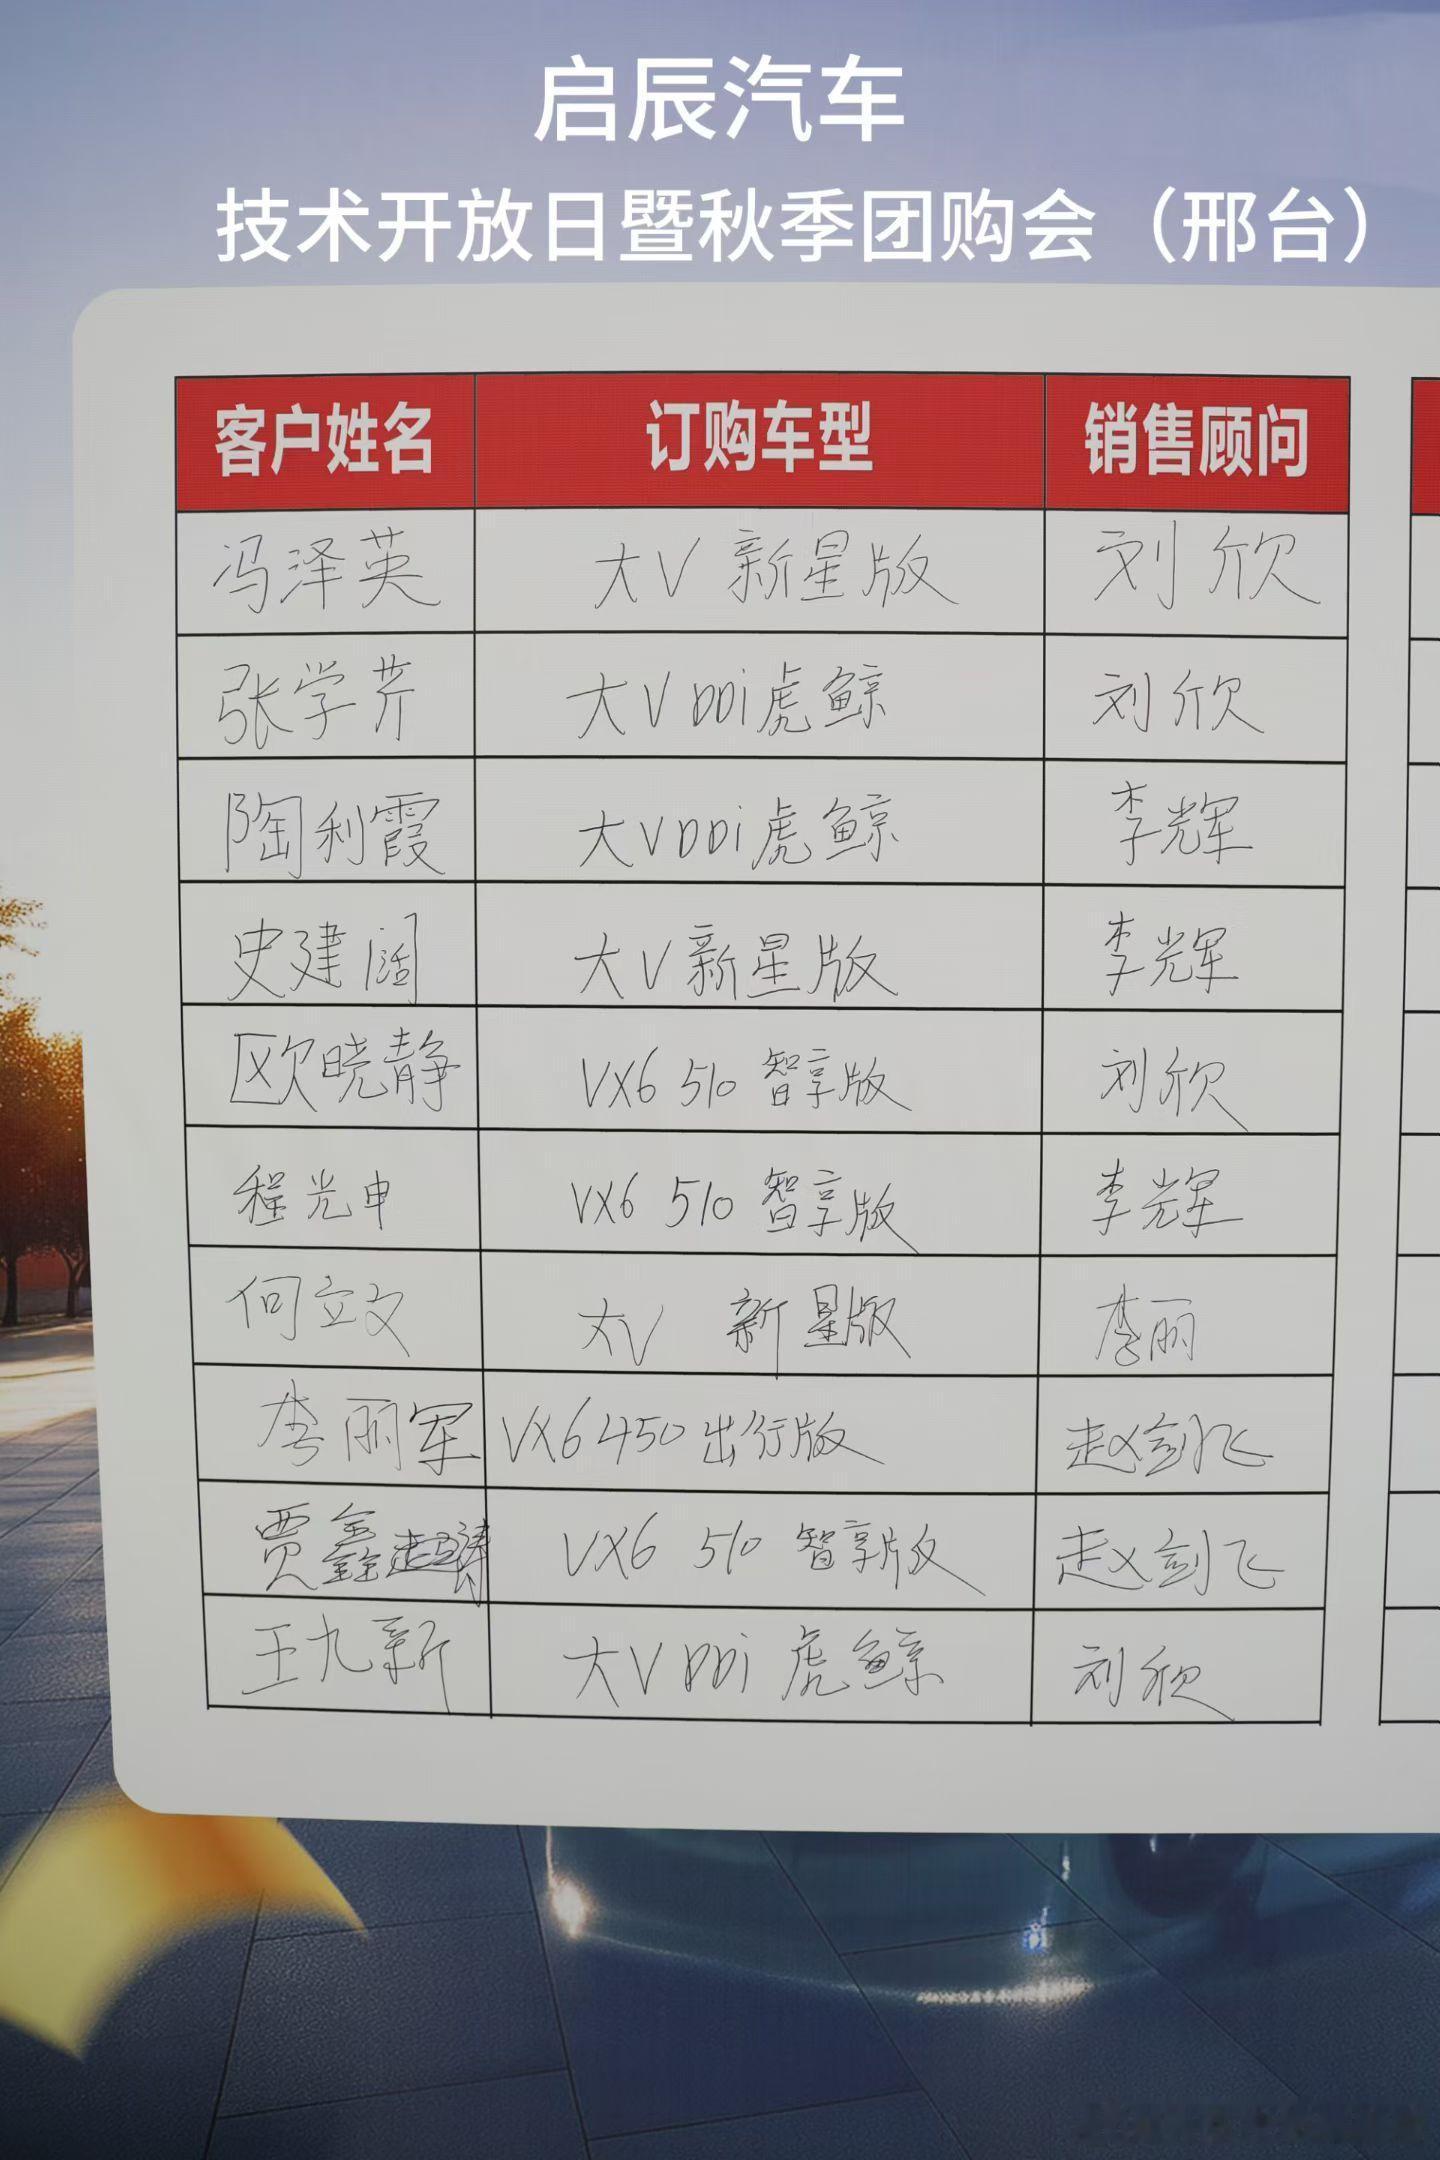 启辰汽车
技术开放日暨秋季团购会（邢台）
客户姓名 订购车型 销售顾问
冯泽英 大V 新星版 刘欣
张学芹 大V DDi虎鲸 刘欣
陶利霞 大VDDi虎鲸 李辉
史建阔 大V新星版 李辉
欧晓静 VX6 510 智享版 刘欣
程光申 VX6 510 智享版 李辉
何立文 大V 新星版 李丽
李丽军 VX6 450 出行版 赵剑飞
贾鑫 VX6 510 智享版 赵剑飞
王九新 大V DDi 虎鲸 刘欣